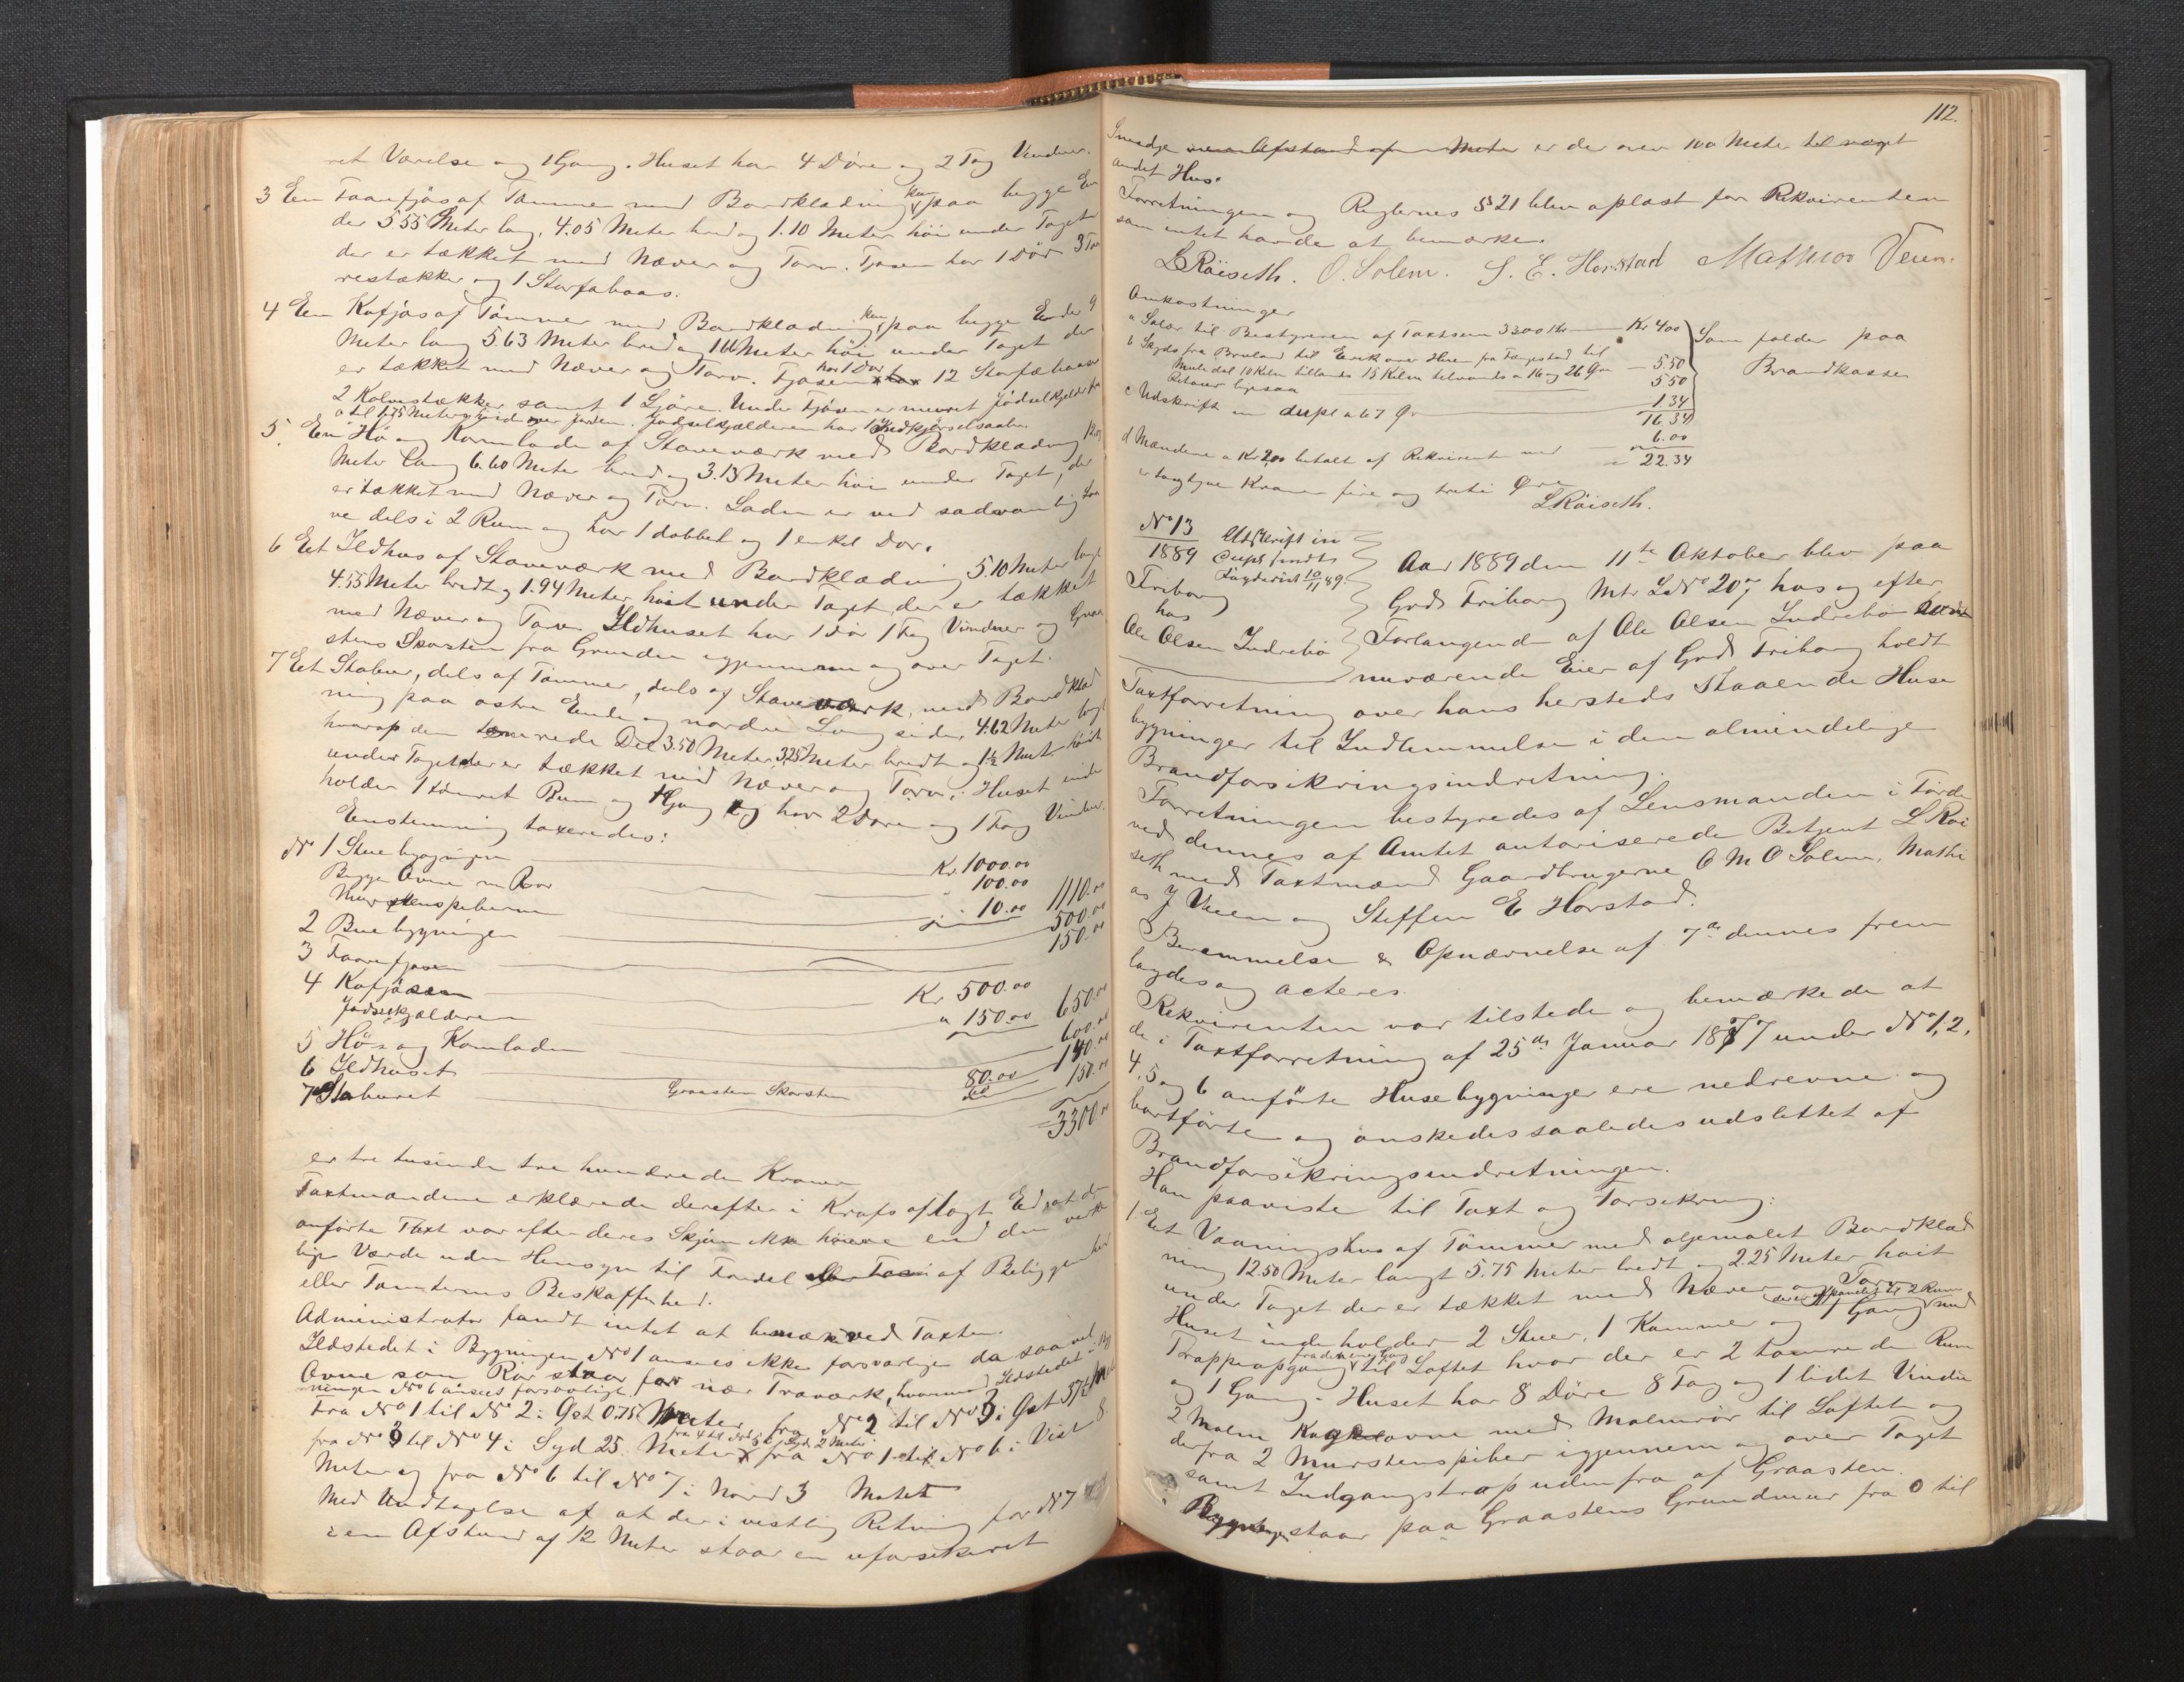 ret Værelse og 1 Gang. Huset har 4 Døre og 2 Fag Vinduer.
3 En Faarefjøs af Tømmer med Bordklædning kun paa begge En
der 5.55 Meter lang, 4.05 Meter bred og 1.10 Meter høi under Taget
der er tækket med Næver og Torv. Fjøsen har 1 Dør 3 Faa
restækker og 1 Storfæbaas.
4 En Kofjøs af Tømmer med Bordklædning kun paa begge Ender 9
Meter lang 5.63 Meter bred og 1.66 Meter høi under Taget der
er tækket med Næver og Torv. Fjøsen har 1 Dør 12 Storfæbaaser
2 Kalvestækker samt 1 Gjøre. Under Fjøsen er muret Gjødselkjelder fra
0 til 1.75 Meter over Jorden. Gjødselkjælderen har 1 Indkjørselsaabn.
5 En Hø og Kornlade af Stavværk med Bordklædning 12.
Meter lang 6.60 Meter bred og 3.13 Meter høi under Taget, der
er tækket med Næver og Torv. Laden er ved sædvanlig Laa
ve delt i 2 Rum og har 1 dobbel og 1 enkel Dør.
6 Et Ildhus af Stavværk med Bordklædning 5.10 Meter langt
4.55 Meter bredt og 1.94 Meter høit under Taget, der er tækket
med Næver og Torv. Ildhuset har 1 Dør 1 Fag Vinduer og Graa
stens Skorsten fra Grunden igjennem og over Taget.
7 Et Stabur, dels af Tømmer, dels af Staveværk, med Bordklæd
ning paa østre Ende og nordre Langside, 4.62 Meter langt
hvoraf den tømrede Del 3.50 Meter, 3.25 Meter bredt og 1½ Meter høit
under Taget der er tækket med Næver og Torv. Huset inde
holder 1 tømret Rum og 1 Gang og har 2 Døre og 1 Fag Vinduer.
Enstemmig taxeredes:
No 1 Stuebygningen Kr. 1000.00
Begge Ovne m Rør " 100.00
Murstenspiberne " 10.00 1110.00
2 Buebygningen 500.00
3 Faarefjøsen 150.00
4 Kofjøsen Kr 500.00
Gjødselkjælderen " 150.00 650.00
5 Hø- og Kornladen 600.00
6 Ildhuset 80.00 140.00
Graastens Skorsten 60
7 Staburet 150.00
3300.00
er tre tusinde tre hundrede Kroner
Taxtmændene erklærede derefter i Kraft af lagt Ed, at den
anførte Taxt var efter deres Skjøn ikke høiere end den virke
lige Værde uden Hensyn til Fordel af Beliggenhed
eller Tomternes Beskaffenhed.
Administrator fandt intet at bemærke ved Taxten.
Ildstedet i Bygningen No 1 ansees ikke forsvarligen da saavel
Ovne som Rør staar for nær Træværk, hvorimod Ildstedet i Byg
ningen No 6 ansees forsvarligt.
Fra No 1 til No 2 i Øst 0.75 Meter, fra No 2 til No 3 i Øst 37½ Met
fra No 3 til No 4 i Syd 25 Meter fra 4 til No 5 i Syd 2 Meter fra No 1 til No 6 i Vest 8
Meter og fra No 6 til No 7 i Nord 3 Meter
Med Undtagelse af at der i vestlig Retning for No 7
i en Afstand af 12 Meter staar en uforsikret
112.
Smedje er der over 100 Meter til noget
andet Hus.
Forretningen og Reglernes § 21 blev oplæst for Rekvirenten
som intet havde at bemærke.
L Røiseth. O. Solem. S. E. Horstad Mathias Veum.
Omkostninger
a Salær til Bestyreren af Taxtsum 3300 Kr Kr 4.00
b Skyds fra Bruland til over Huen fra Fægestad til
10 Kilm tillands 15 Kilm tilvands a 16 og 26 Øre 5.50
Retour ligesaa 5.50
c Udskrift in dupl a 67 Ør 1.34
16.34
Som falder paa
Brandkassen
d Mændene a Kr 2,00 betalt af Rekvirent med 6.00
22.34
er togtyve Kroner fire og treti Øre
L Røiseth.
No 13
1889
Friborg
hos
Ole Olsen Indrebø
Udskrift in
dupl sendt
Fogderiet 10/11 89.
Aar 1889 den 11te Oktober blev paa
Grd. Friborg Mtr. L No 207 hos og efter
Forlangende af Ole Olsen Indrebø
nuværende Eier af Grd Friborg holdt
Taxtforretning over hans hersteds staaende Huse
bygninger til Indlemmelse i den almindelige
Brandforsikringsindretning.
Forretningen bestyredes af Lensmanden i Førde
ved dennes af Amtet autoriserede Betjent L Røi
seth med Taxtmænd Gaardbrugerne O M O Solem, Mathi
as J Veum og Steffen E Horstad.
Berammelse & Opnævnelse af 7de dennes frem
lagdes og acteres.
Rekvirenten var tilstede og bemærkede at
de i Taxtforretning af 25de Januar 1877 under No 1, 2,
4, 5 og 6 anførte Husebygninger ere nedrevne og
bortførte og ønskedes saaledes udslettet af
Brandforsikringsindretningen.
Han paaviste til Taxt og Forsikring:
1 Et Vaaningshus af Tømmer med oljemalet Bordklæd
ning 12.50 Meter langt 5.75 Meter bredt og 2.25 Meter høit
under Taget der er tækket med Næver og Torv.
Huset indeholder 2 Stuer, 1 Kammer og 1 Gang der er afpanelet til 2 Rum med
Trappeopgang fra den ene Gang til Loftet hvor der er 2 tømrede Rum
og 1 Gang. Huset har 8 Døre 8 Fag og 1 lidet Vindu
2 Malm Kogeovne med Malmrør til Loftet og
derfra 2 Murstenspiber igjennem og over Taget
samt Indgangstrap udenfra af Graasten.
Bygningen staar paa Graastens Grundmur fra 0 til